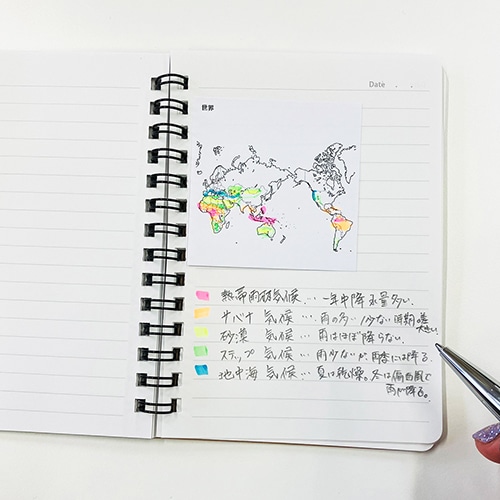 Date . .
世界
熱帯雨林気候…一年中降水量多い.
サバナ 気候…雨の多い/少ない時期の差大きい.
砂漠 気候…雨はほぼ降らない.
ステップ 気候…雨少ないが、雨季には降る.
地中海 気候…夏は乾燥。冬は偏西風で
雨が降る。